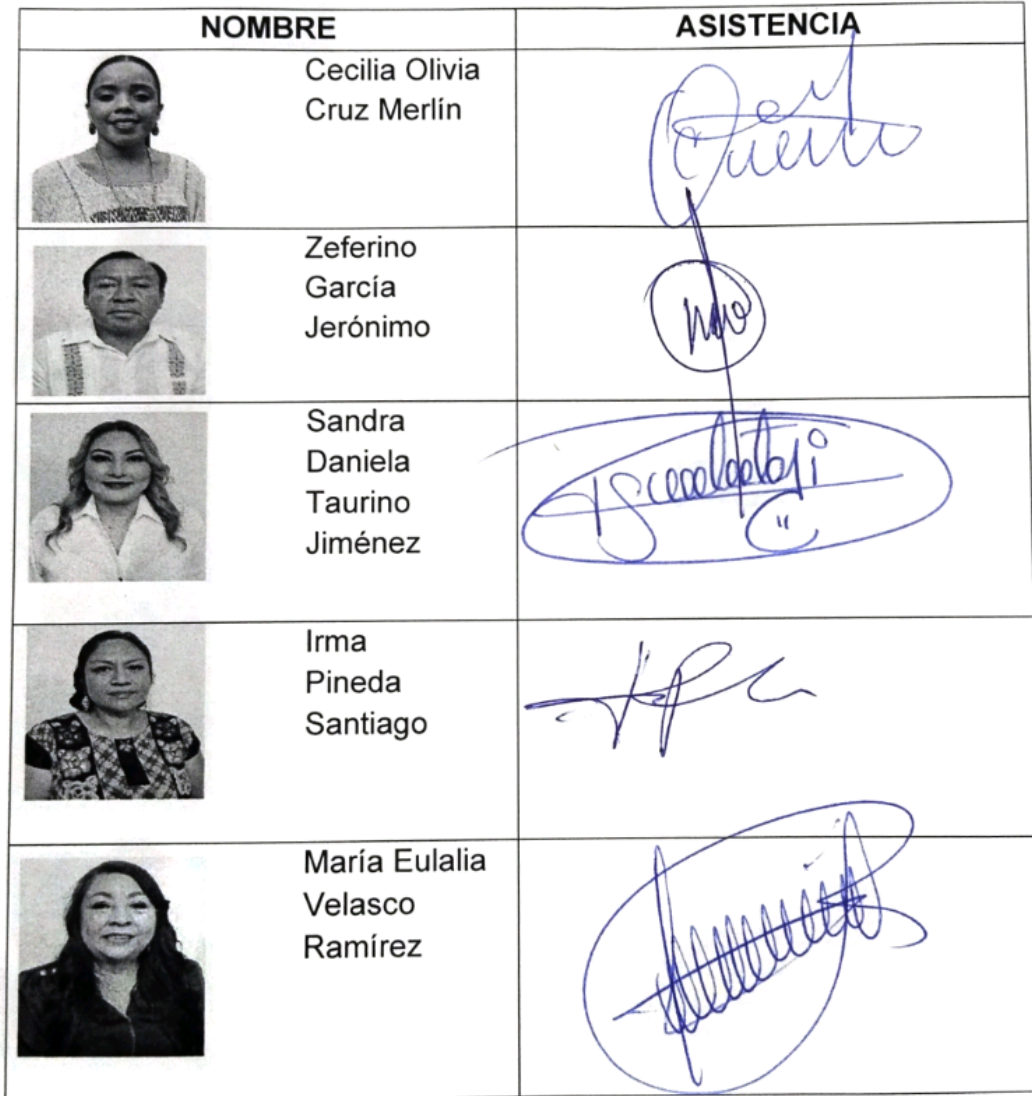 NOMBRE ASISTENCIA
Cecilia Olivia
Cruz Merlín
Zeferino
García
Jerónimo
Sandra
Daniela
Taurino
Jiménez
Irma
Pineda
Santiago
María Eulalia
Velasco
Ramírez